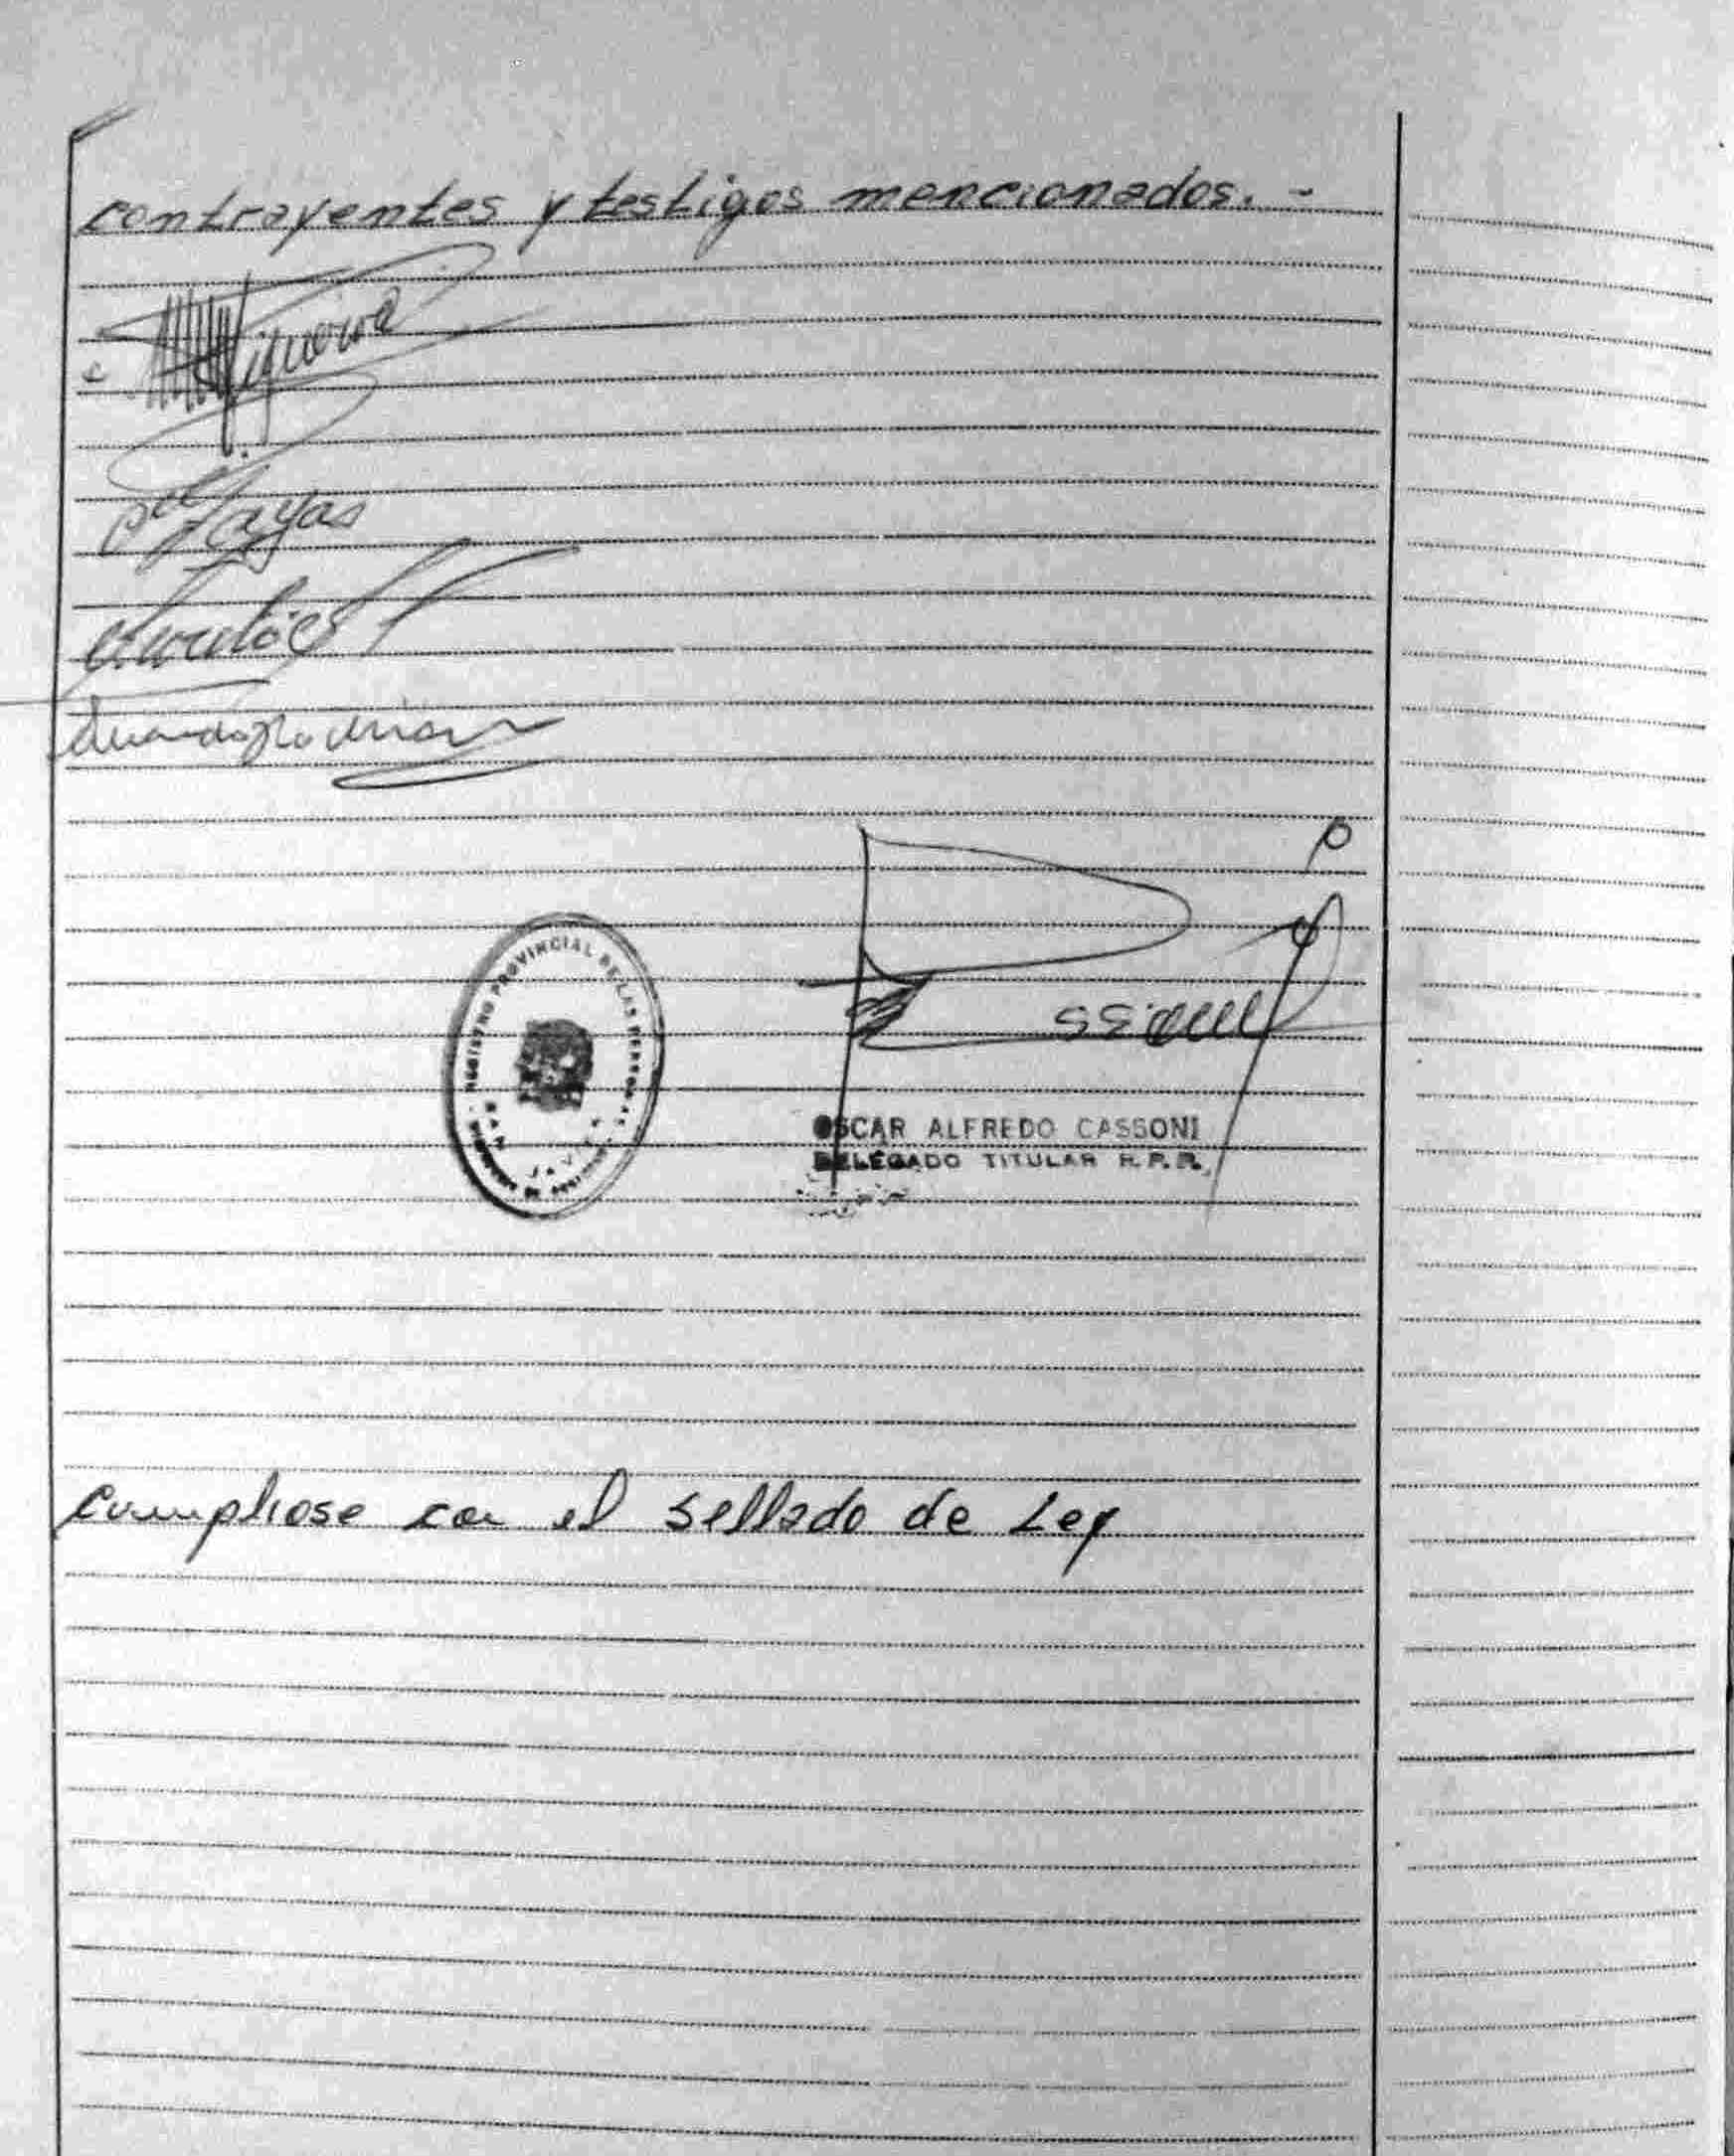 contrayentes y testigos mencionados. -
Figueroa
Zayas
REGISTRO PROVINCIAL DE LAS PERSONAS
SAN JAVIER
OSCAR ALFREDO CASSONI
DELEGADO TITULAR R.P.P.
Cumpliose con el sellado de Ley